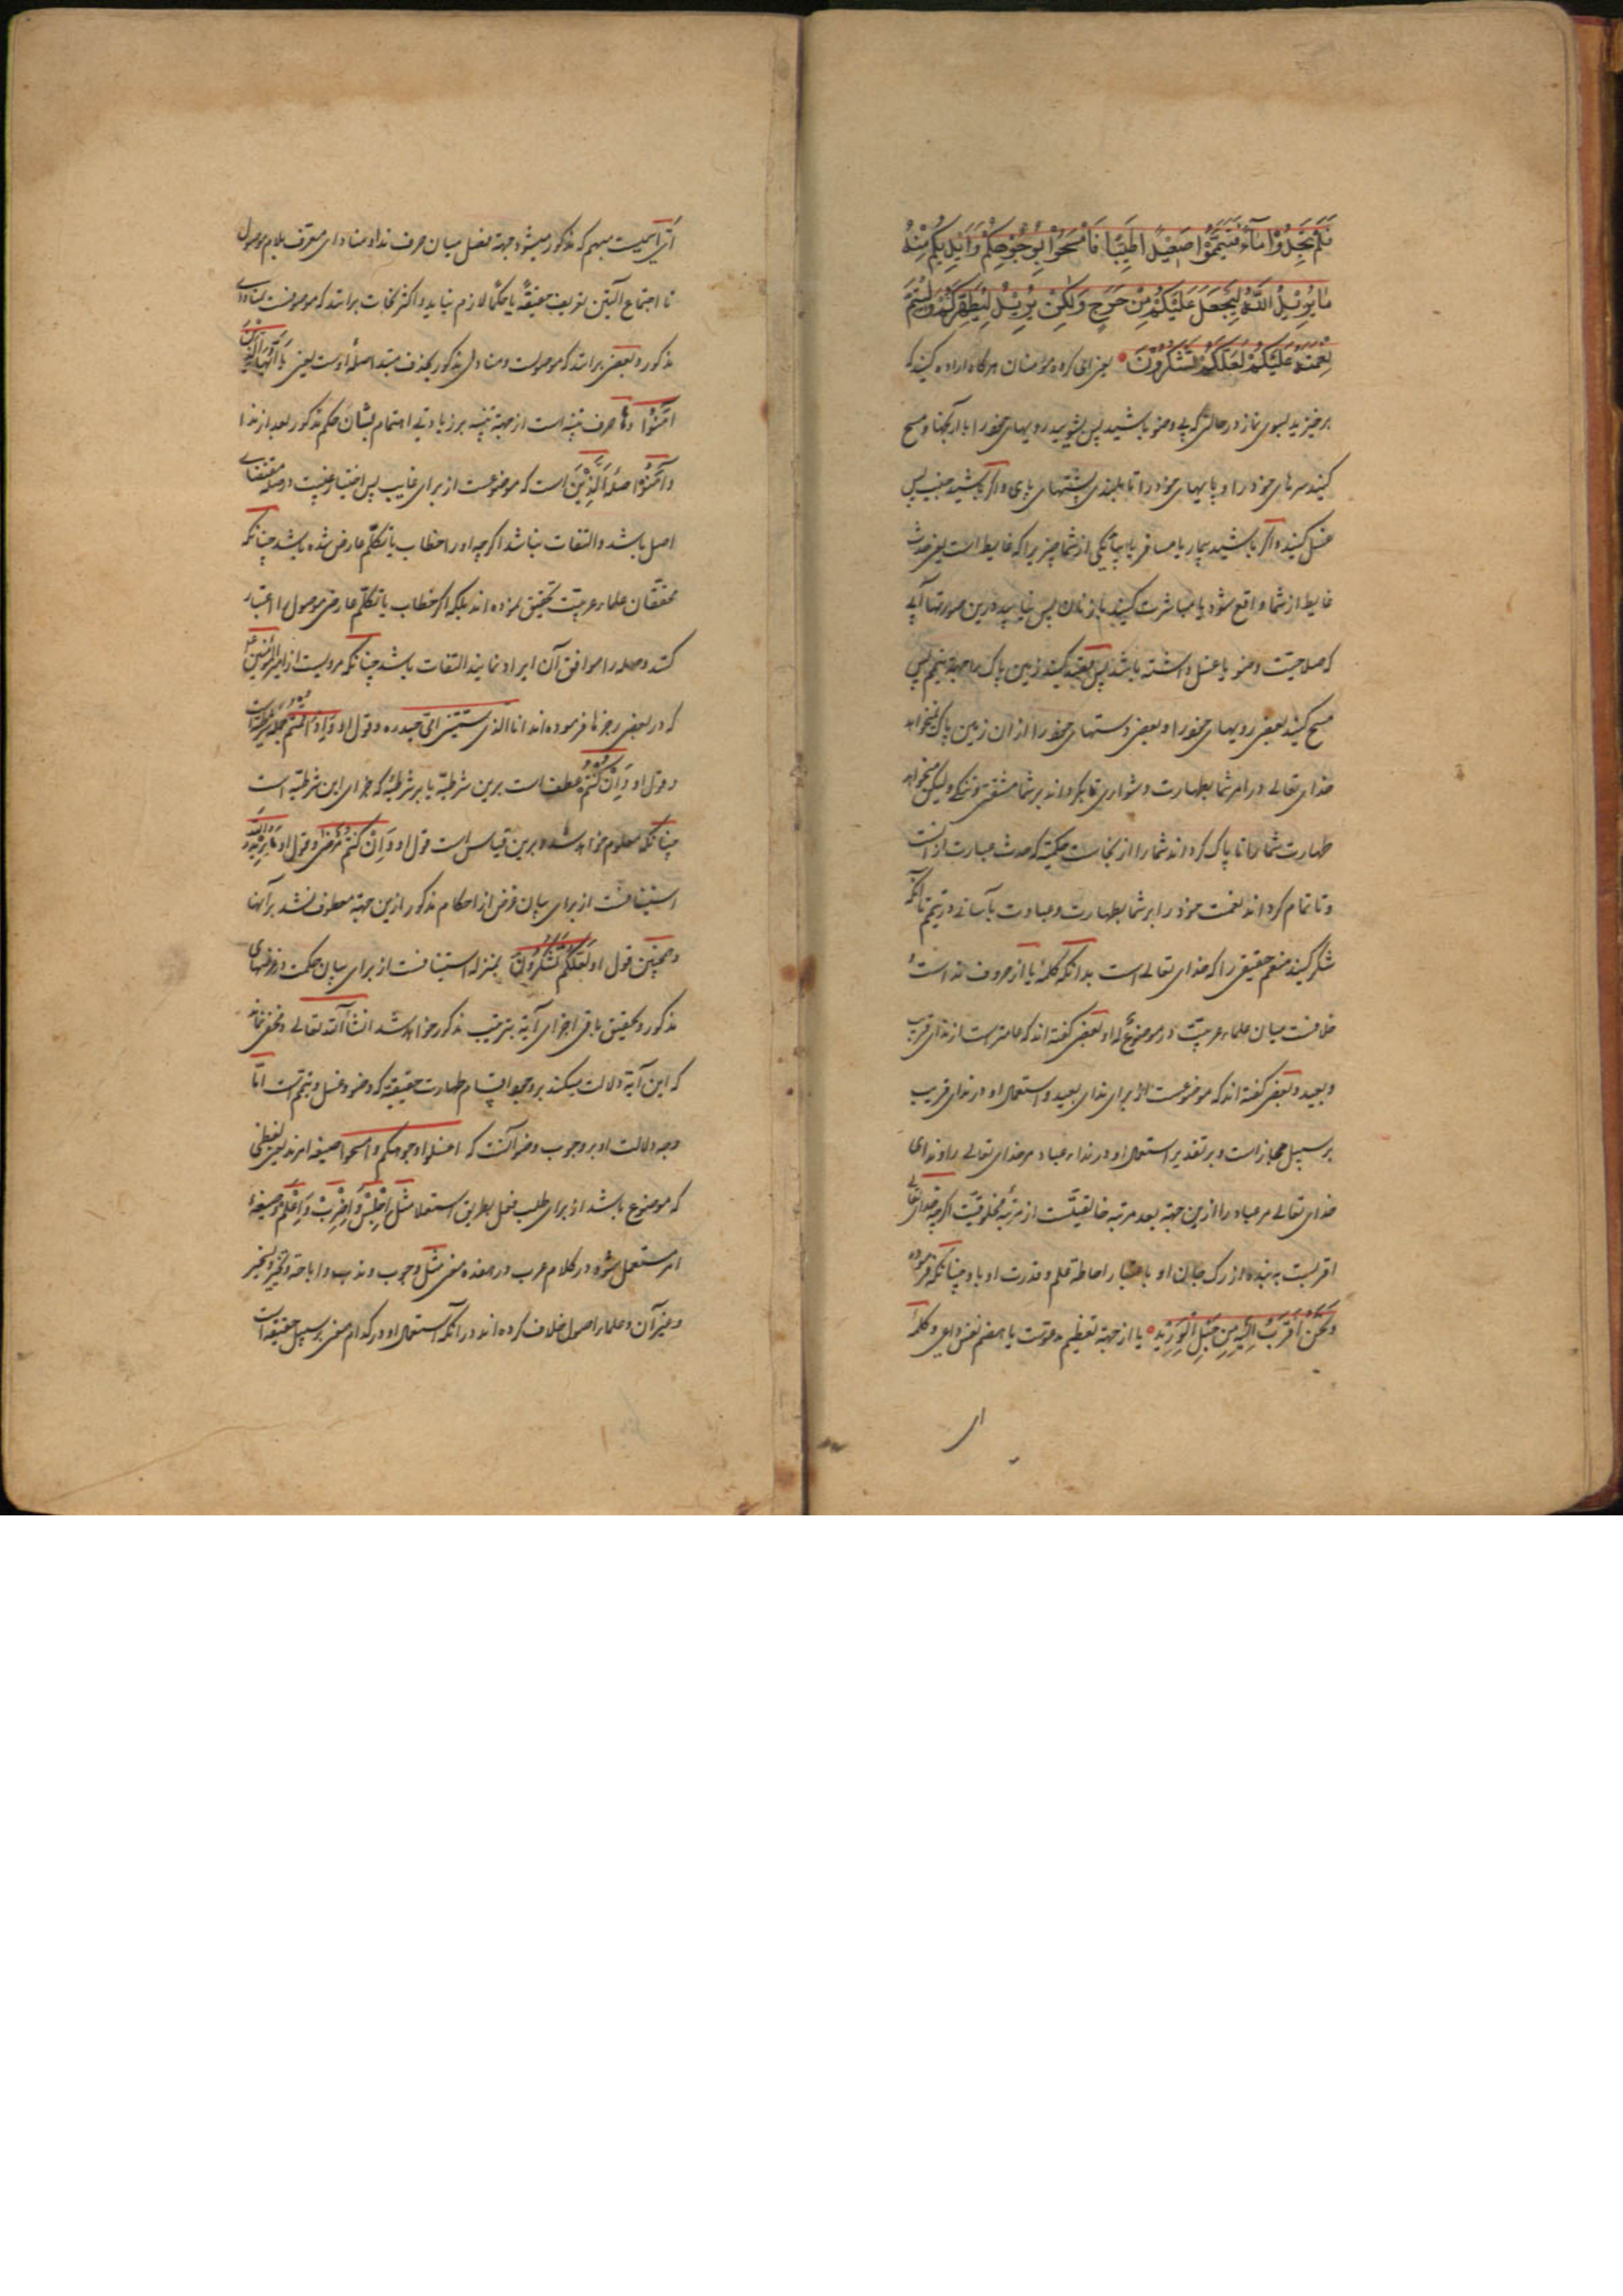 فَلَمْ تَجِدُوْا مَآءً فَتَيَمَّمُوْا صَعِيْدًا طَيِّبًا فَامْسَحُوْا بِوُجُوْهِكُمْ وَاَيْدِيكُمْ مِنْهُ
مَا يُرِيْدُ اللّٰهُ لِيَجْعَلَ عَلَيْكُمْ مِنْ حَرَجٍ وَلٰكِنْ يُرِيْدُ لِيُطَهِّرَكُمْ وَلِيُتِمَّ
نِعْمَتَهُ عَلَيْكُمْ لَعَلَّكُمْ تَشْكُرُوْنَ يعنى اى كروه مومنان هركاه اراده كنيد كه
برخيزيد بسوى نماز در حالتى كه بى وضو باشيد پس بشوييد رويهاى خود را با آرنجها و مسح
كنيد سرهاى خود را و پايهاى خود را تا بلندى پشتهاى پاى و اكر باشيد جنب پس
غسل كنيد و اكر باشيد بيمار يا مسافر يا بيايد يكى از شما چيزيرا كه غايط است يعنى حدث
غايط از شما واقع شود يا مباشرت كنيد با زنان پس نيابيد درين صورتها آبى
كه صلاحيت وضو يا غسل داشته باشد پس قصد كنيد زمين پاك را بجهة تيمم پس
مسح كنيد بعضى رويهاى خود را و بعضى دستهاى خود را از ان زمين پاك نميخواهد
خداى تعالى در امر شما بطهارت دشوارى تا بكرداند بر شما مشقتى و تنكى وليكن ميخواهد
طهارت شما را تا پاك كرداند شما را از نجاست حكميه كه حدث عبارت از آنست
و تا تمام كرداند نعمت خود را بر شما بطهارت و عبادت بآسانى در تيمم تا آنكه
شكر كنيد منعم حقيقى را كه خداى تعالى است بدانكه كلمهٔ يا از حروف نداست و
خلافست ميان علماء عربيت در موضوع له او بعضى كفته اند كه عامترست از نداى قريب
و بعيد و بعضى كفته اند كه موضوعست از براى نداى بعيد و استعمال او در نداى قريب
بر سبيل مجازاست و بر تقدير استعمال او در نداء عباد مر خداى تعالى را و نداى
خداى تعالى مر عباد را ازين جهة بعد مرتبه خالقيتست از مرتبهٔ مخلوقيت اكرچه خداى تعالى
اقربست به بنده از رك جان او باعتبار احاطهٔ علم و قدرت او باو چنانكه فرموده
وَنَحْنُ اَقْرَبُ اِلَيْهِ مِنْ حَبْلِ الْوَرِيْدِ يا از جهة تعظيم مدعوست يا هضم نفس داعى و كلمهٔ
اى
اَىّ اسميست مبهم كه مذكور ميشود جهة فصل ميان حرف ندا و مناداى معرف بلام موصول
تا اجتماع آلتين تعريف حقيقةً يا حكمًا لازم نيايد و اكثر نحات برانند كه موصوفست بمناداى
مذكور و بعضى برانند كه موصولست و منادى مذكور بحذف مبتدا صلهٔ اوست يعنى يَا اَيُّهَا الَّذِيْنَ
اٰمَنُوْا و ها حرف تنبيه است از جهة تنبيه بر زيادتى اهتمام بشان حكم مذكور بعد از ندا
و اٰمَنُوْا صلهٔ اَلَّذِيْنَ است كه موضوعست از براى غايب پس اختيار غيبت در صله مقتضاى
اصل باشد و التفات نباشد اكرچه او را خطاب يا تكلم عارض شده باشد چنانكه
محققان علماء عربيت تحقيق نموده اند بلكه اكر خطاب يا تكلم عارض موصول را اعتبار
كنند و صله را موافق آن ايراد نمايند التفات باشد چنانكه مرويست از امير المؤمنين
كه در بعضى رجزها فرموده اند انا الذى سمتنى امى حيدره و قول او و اِذَا قُمْتُمْ جمله شرطيه است
و قول او وَاِنْ كُنْتُمْ عطف است برين شرطيه يا بر شرطيهٔ كه جزاى اين شرطيه است
چنانكه معلوم خواهد شد و برين قياس است قول او وَاِنْ كُنْتُمْ مَرْضٰى و قول او مَا يُرِيْدُ اللّٰهُ
استينافست از براى بيان غرض از احكام مذكور ازين جهة معطوف نشد برآنها
و همچنين قول او لَعَلَّكُمْ تَشْكُرُوْنَ بمنزله استينافست از براى بيان حكمت در غرضهاى
مذكور و تحقيق باقى اجزاى آية بترتيب مذكور خواهد شد انشاءالله تعالى و مخفى نماند
كه اين آية دلالت ميكند بر وجوب اقسام طهارت حقيقيه كه وضو و غسل و تيممست اما
وجه دلالت او بر وجوب وضو آنست كه اغسلوا وجوهكم و امسحوا صيغه امرند يعنى لفظى
كه موضوع باشد از براى طلب فعل بطريق استعلا مثل اِجْلِسْ وَاضْرِبْ وَاِعْلَمْ و صيغهٔ
امر مستعمل شود در كلام عرب در معنى مثل وجوب و ندب و اباحة و تخيير
و غير آن و علماء اصول خلاف كرده اند در آنكه استعمال او در كدام معنى بر سبيل حقيقة است